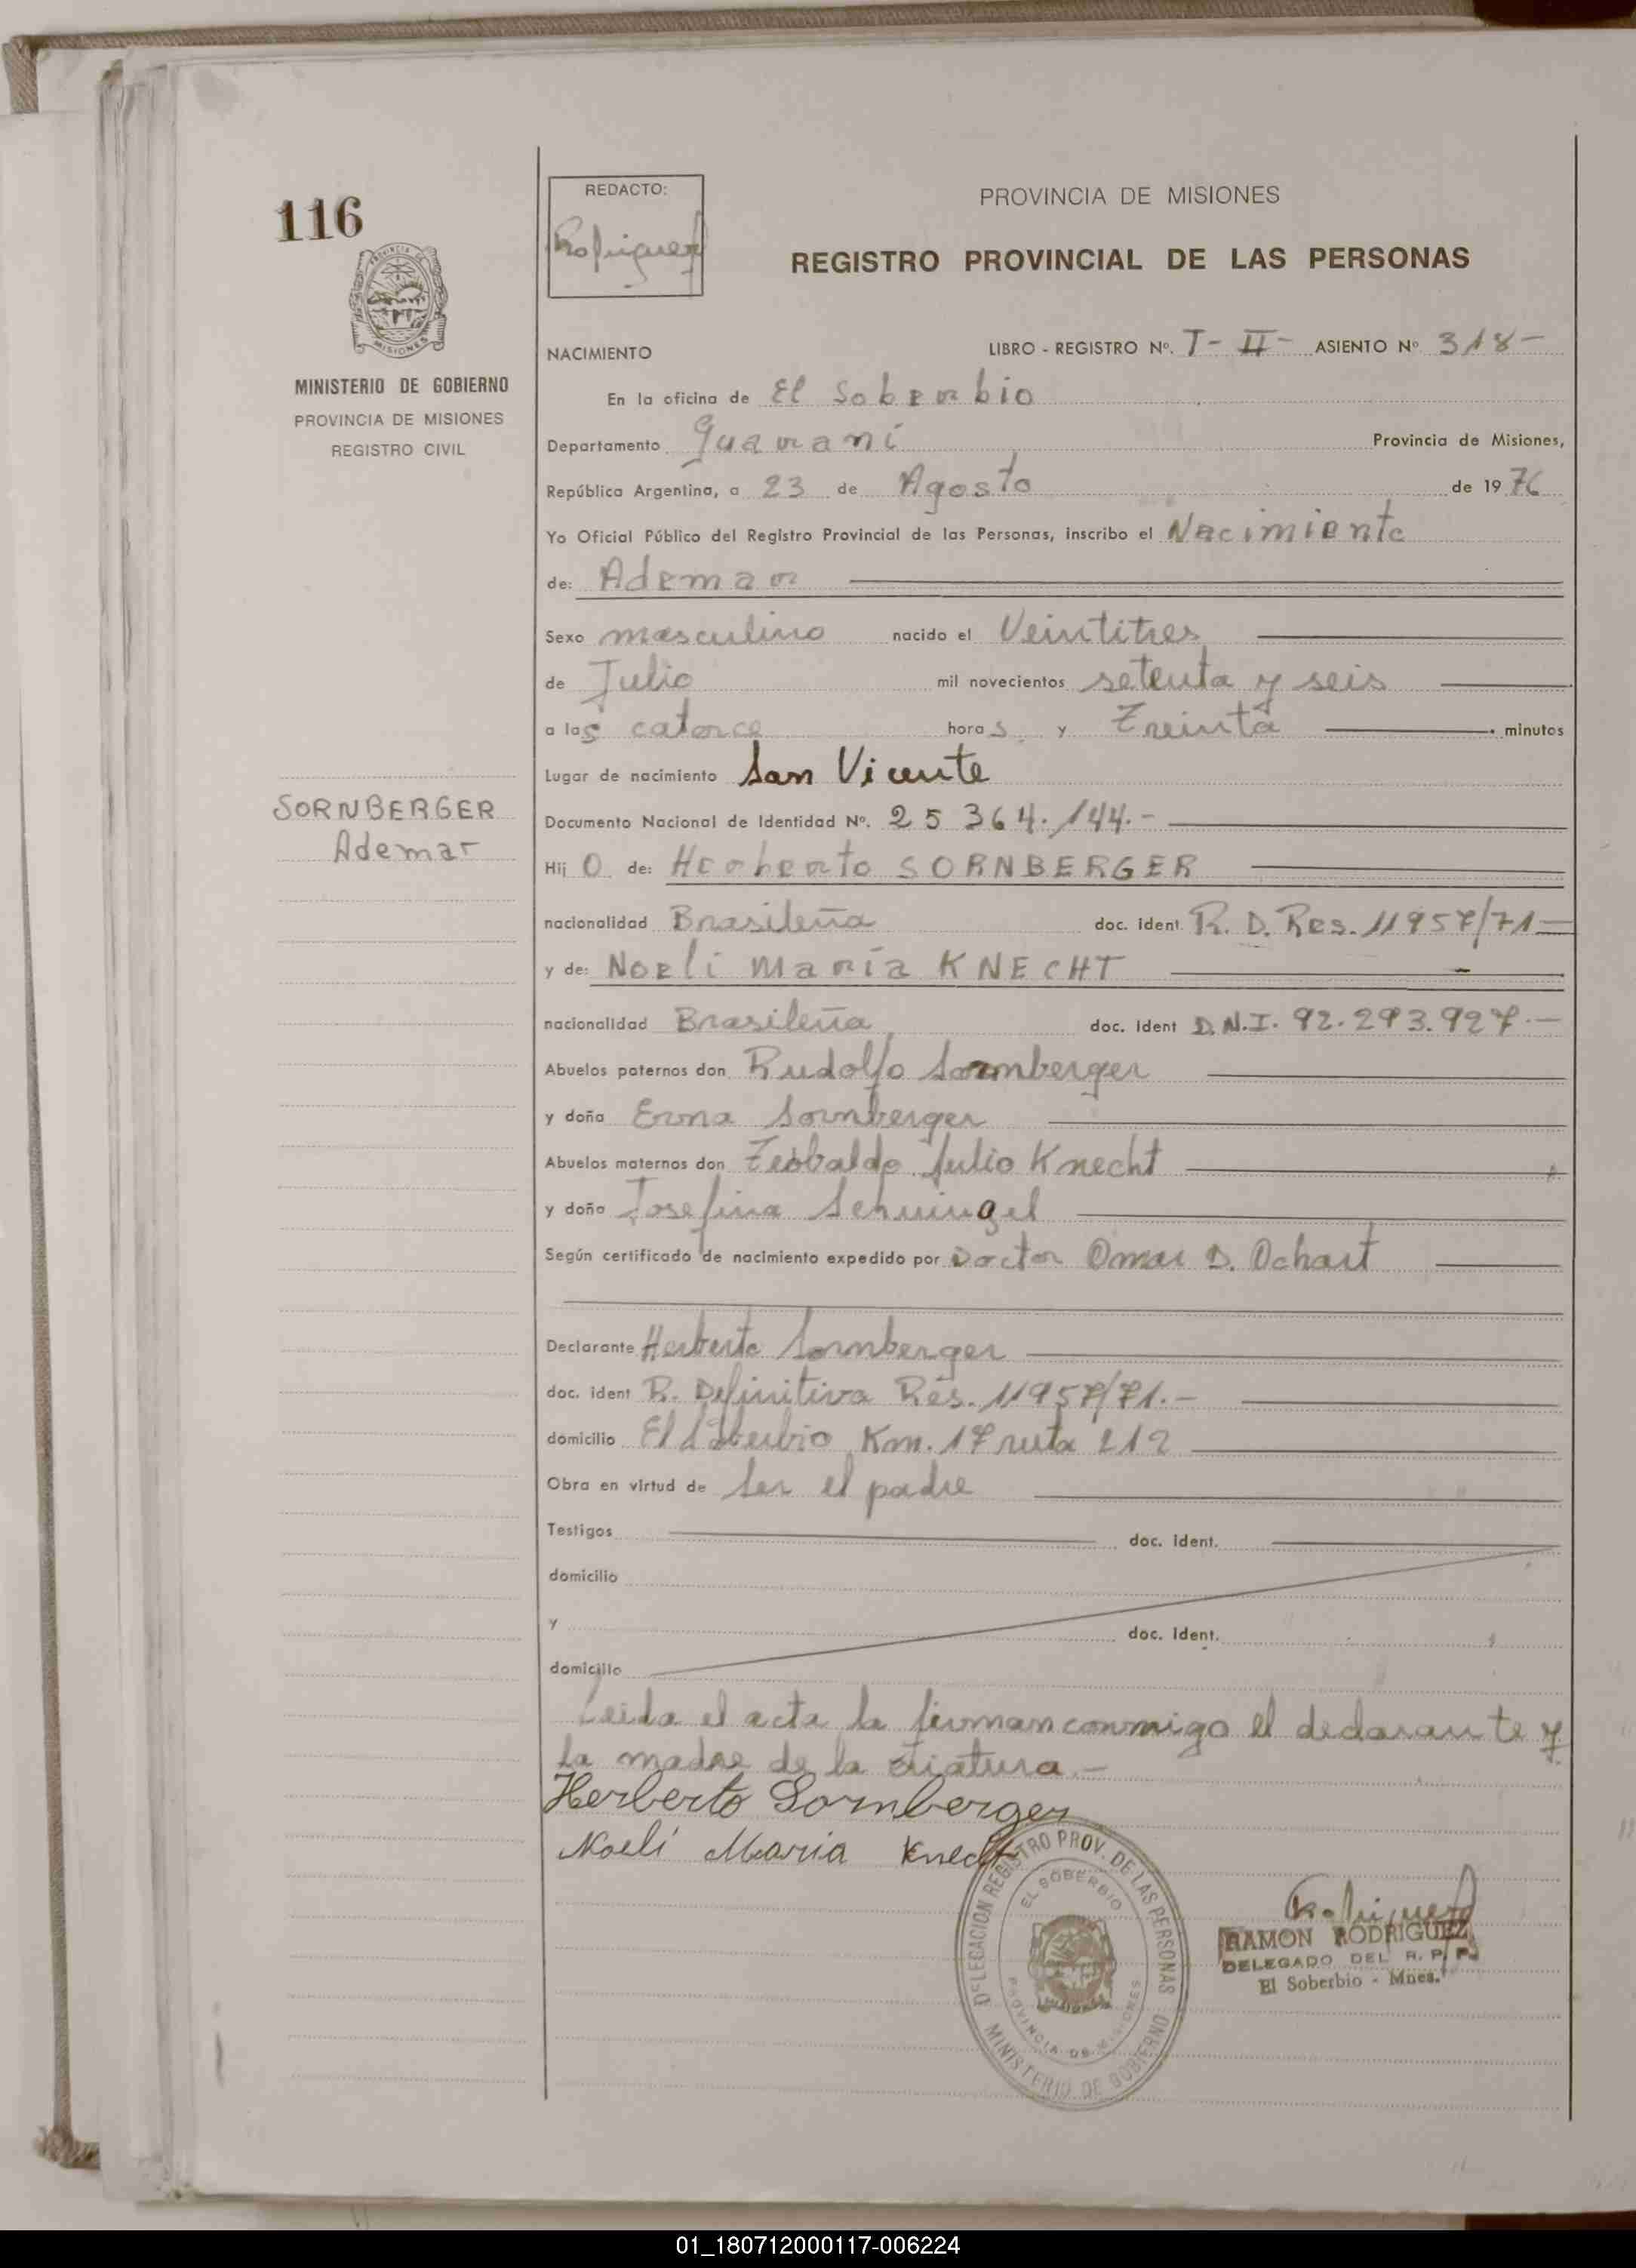 116
REDACTO:
Rodriguez
PROVINCIA DE MISIONES
REGISTRO PROVINCIAL DE LAS PERSONAS
MINISTERIO DE GOBIERNO
PROVINCIA DE MISIONES
REGISTRO CIVIL
SORNBERGER
Ademar
NACIMIENTO LIBRO - REGISTRO Nº. T - II - ASIENTO Nº 318 -
En la oficina de El Soberbio
Departamento Guaraní Provincia de Misiones,
República Argentina, a 23 de Agosto de 1976
Yo Oficial Público del Registro Provincial de las Personas, inscribo el Nacimiento
de: Ademar
Sexo masculino nacido el Veintitres
de Julio mil novecientos setenta y seis
a las catorce horas y Treinta minutos
Lugar de nacimiento San Vicente
Documento Nacional de Identidad Nº. 25 364.144.-
Hij O de: Herberto SORNBERGER
nacionalidad Brasileña doc. ident. R. D. Res. 11957/71
y de: Noeli María KNECHT
nacionalidad Brasileña doc. ident D.N.I. 92.293.927.-
Abuelos paternos don Rudolfo Sornberger
y doña Erna Sornberger
Abuelos maternos don Teobaldo Julio Knecht
y doña Josefina Schuingel
Según certificado de nacimiento expedido por Doctor Omar D. Ochart
Declarante Herberto Sornberger
doc. ident R. Definitiva Res. 11957/71.-
domicilio El Soberbio Km. 17 ruta 212
Obra en virtud de Ser el padre
Testigos doc. ident.
domicilio
y doc. ident.
domicilio
Leida el acta la firman conmigo el declarante y
la madre de la criatura.-
Herberto Sornberger
Noeli Maria Knecht
DELEGACION REGISTRO PROV. DE LAS PERSONAS
EL SOBERBIO
PROVINCIA DE MISIONES
MINISTERIO DE GOBIERNO
Rodriguez
RAMON RODRIGUEZ
DELEGADO DEL R. P. P.
El Soberbio - Mnes.
01_180712000117-006224